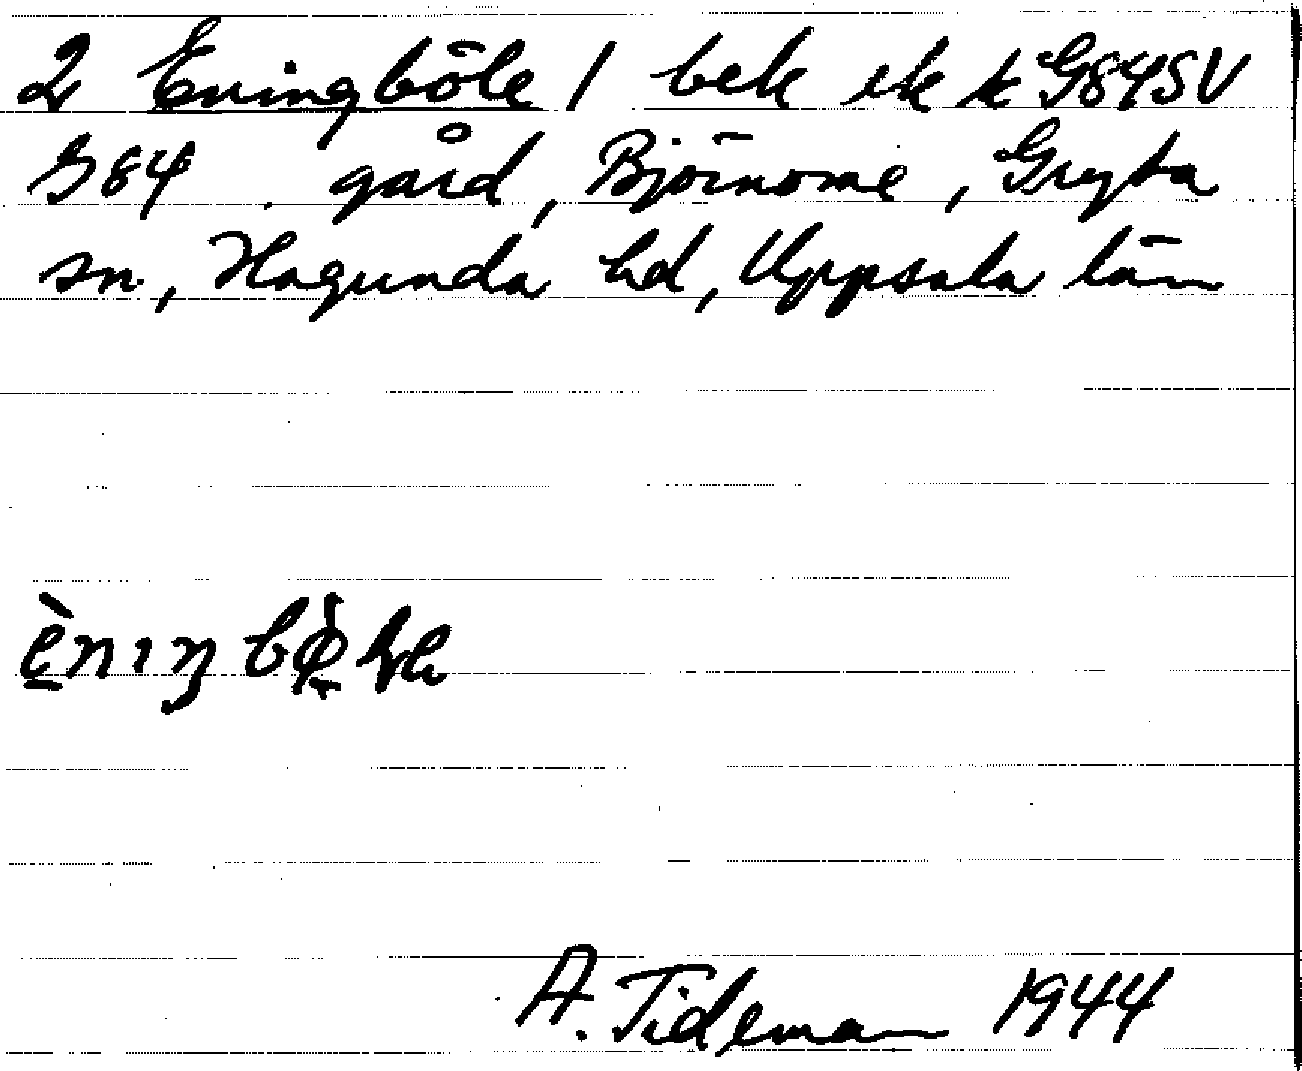 2 Eningböle / bek ek k G84SV
G84. gård, Björnome, Gryta
sn., Hagunda hd, Uppsala län
A. Tideman 1944